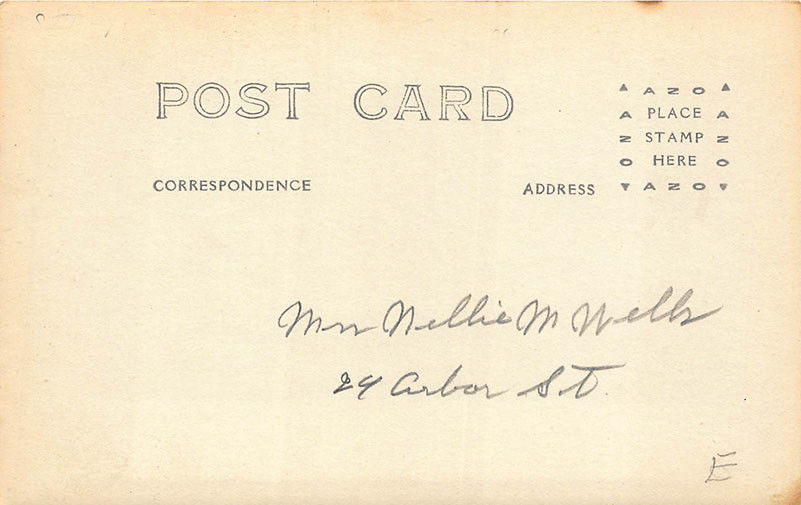 POST CARD
AZO
A PLACE A
N STAMP N
O HERE O
AZO
CORRESPONDENCE
ADDRESS
Mrs Nellie M Wells
24 Arbor St.
E